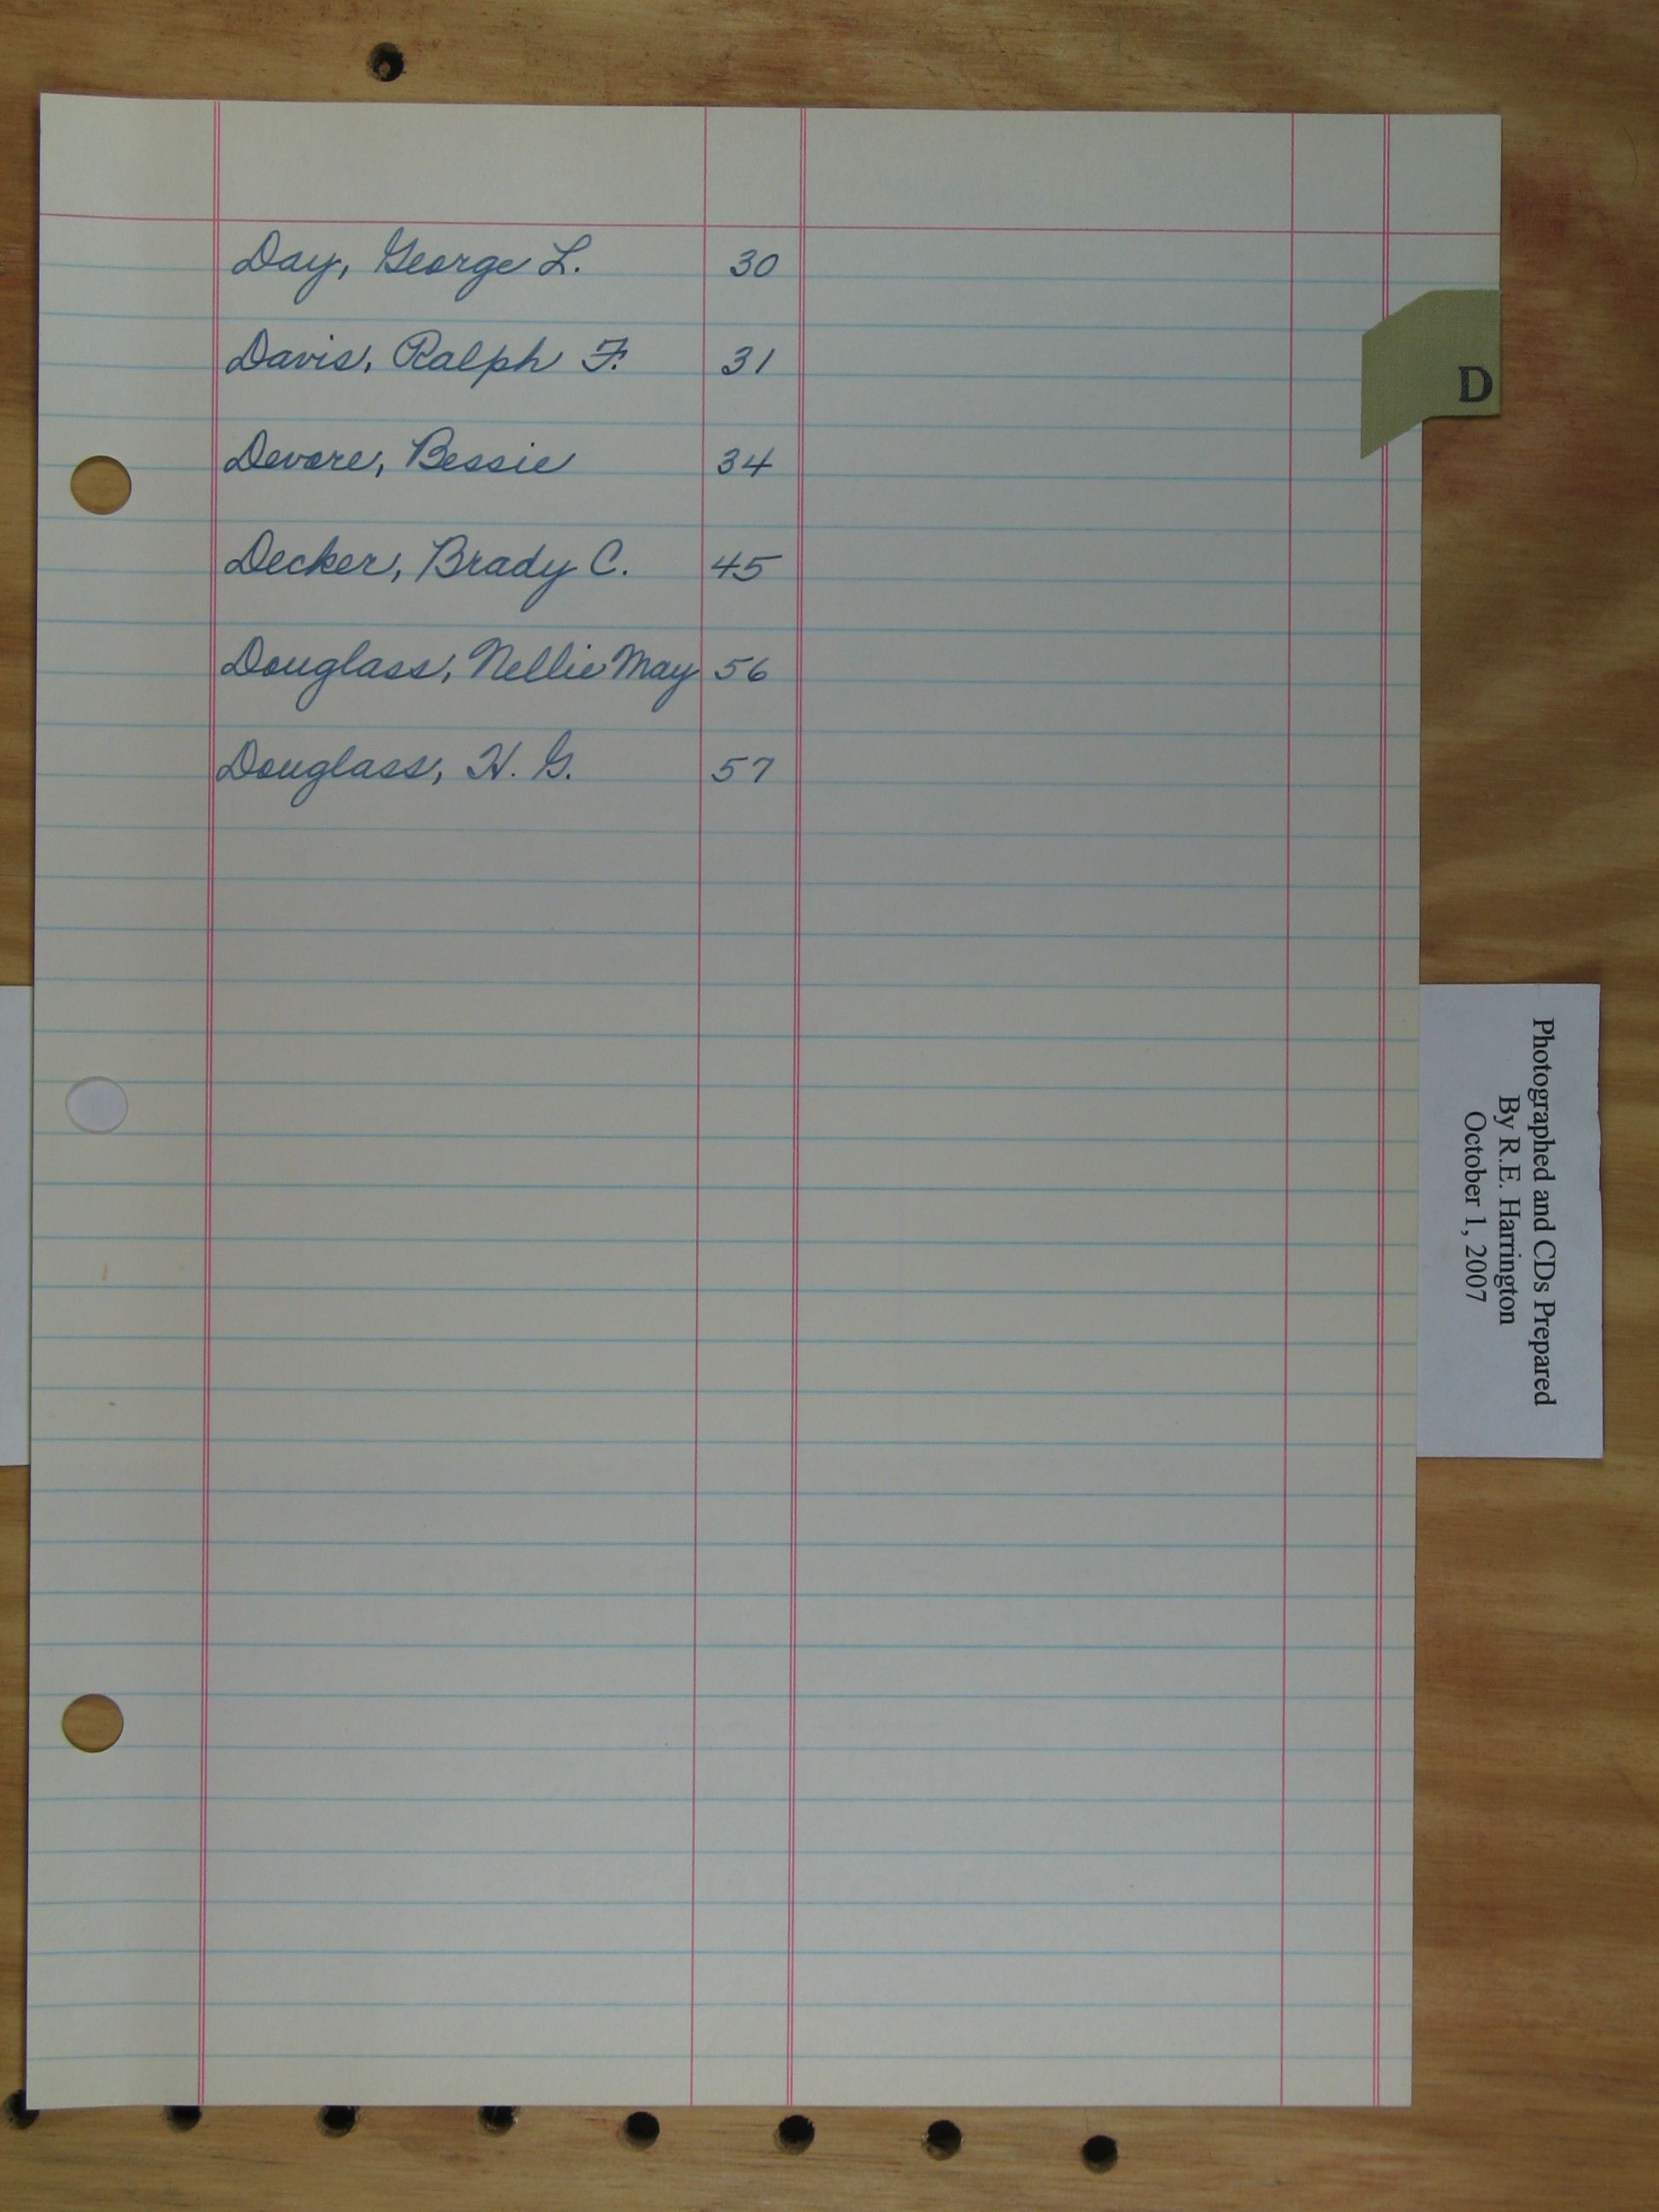 Day, George L. 30
Davis, Ralph F. 31
D
Devore, Bessie 34
Decker, Brady C. 45
Douglass, Nellie May 56
Douglass, H. G. 57
Photographed and CDs Prepared
By R.E. Harrington
October 1, 2007